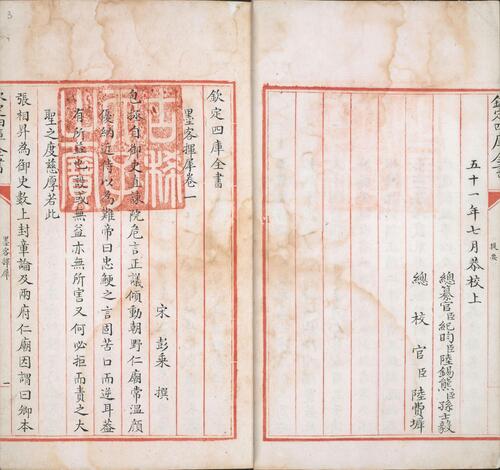 欽定四庫全書
提要
五十一年七月恭校上
總纂官臣紀昀臣陸錫熊臣孫士毅
總校官臣陸費墀
欽定四庫全書
墨客揮犀卷一
宋 彭乗 撰
包拯自御史直諫院危言正議傾動朝野仁廟常温顔
優納近侍以為難帝曰忠鯁之言固苦口而逆耳蓋
有所益也設或無益亦無所害又何必拒而責之大
聖之度慈厚若此
張相昇為御史數上封章論及兩府仁廟因謂曰卿本
欽定四庫全書
墨客揮犀
一